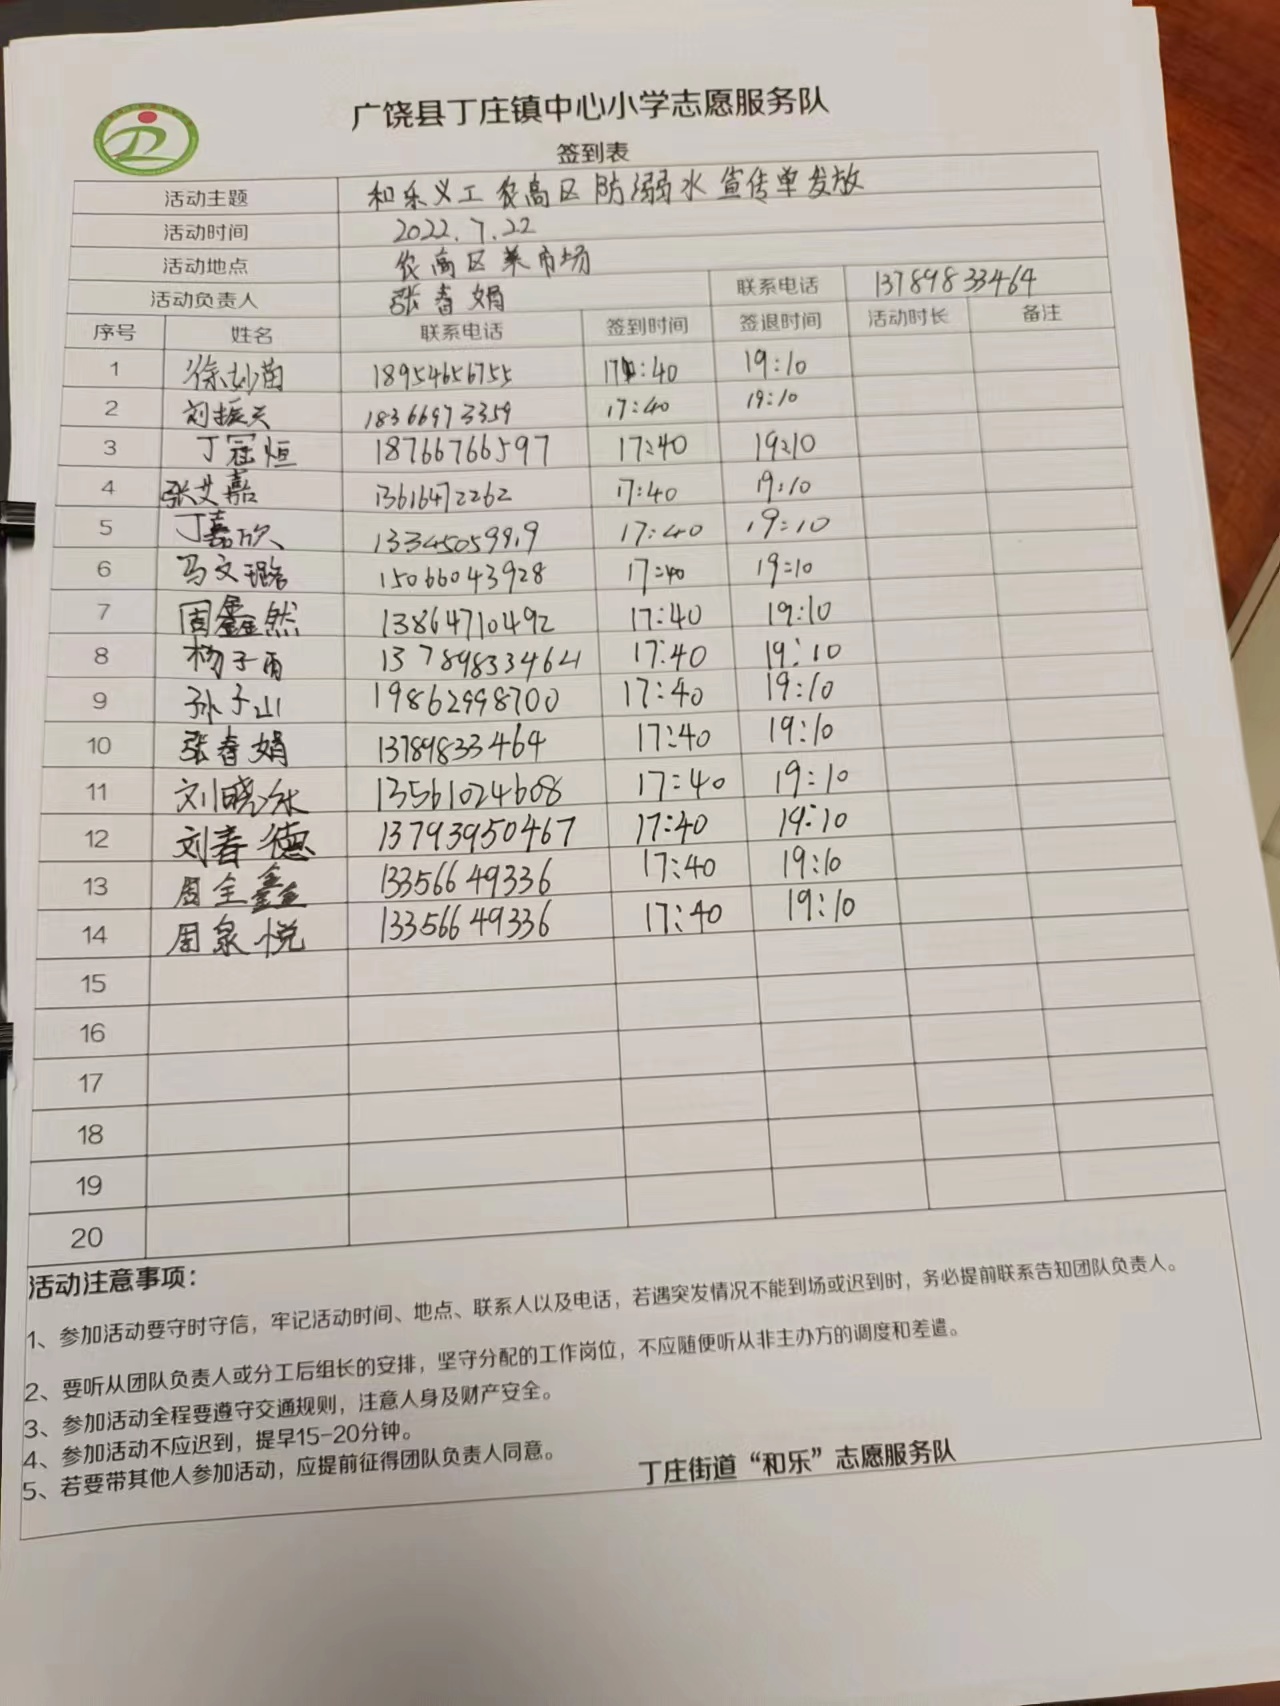 广饶县丁庄镇中心小学志愿服务队
签到表
活动主题 和乐义工农高区防溺水宣传单发放
活动时间 2022.7.22
活动地点 农高区菜市场
活动负责人 张春娟 联系电话 13789833464
序号 姓名 联系电话 签到时间 签退时间 活动时长 备注
1 徐妙苗 18954656755 17:40 19:10
2 刘振天 18366973359 17:40 19:10
3 丁冠恒 18766766597 17:40 19:10
4 张艾嘉 13616472262 17:40 19:10
5 丁嘉欣 13345059919 17:40 19:10
6 马文璐 15066043928 17:40 19:10
7 周鑫然 13864710492 17:40 19:10
8 杨子雨 13789833464 17:40 19:10
9 孙子山 19862998700 17:40 19:10
10 张春娟 13789833464 17:40 19:10
11 刘晓 13561024608 17:40 19:10
12 刘春德 13793950467 17:40 19:10
13 周全鑫 13356649336 17:40 19:10
14 周泉悦 13356649336 17:40 19:10
15
16
17
18
19
20
活动注意事项：
1、参加活动要守时守信，牢记活动时间、地点、联系人以及电话，若遇突发情况不能到场或迟到时，务必提前联系告知团队负责人。
2、要听从团队负责人或分工后组长的安排，坚守分配的工作岗位，不应随便听从非主办方的调度和差遣。
3、参加活动全程要遵守交通规则，注意人身及财产安全。
4、参加活动不应迟到，提早15-20分钟。
5、若要带其他人参加活动，应提前征得团队负责人同意。
丁庄街道“和乐”志愿服务队